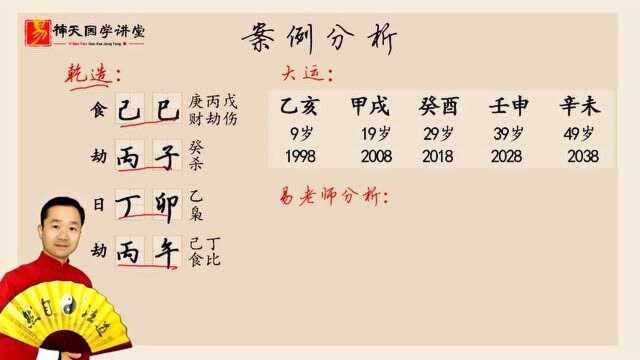 易 天国学讲堂
案例分析
乾造：
食 己 巳 庚丙戊
财劫伤
劫 丙 子 癸
杀
日 丁 卯 乙
枭
劫 丙 午 己丁
食比
大运：
乙亥 甲戌 癸酉 壬申 辛未
9岁 19岁 29岁 39岁 49岁
1998 2008 2018 2028 2038
易老师分析：
然自法道